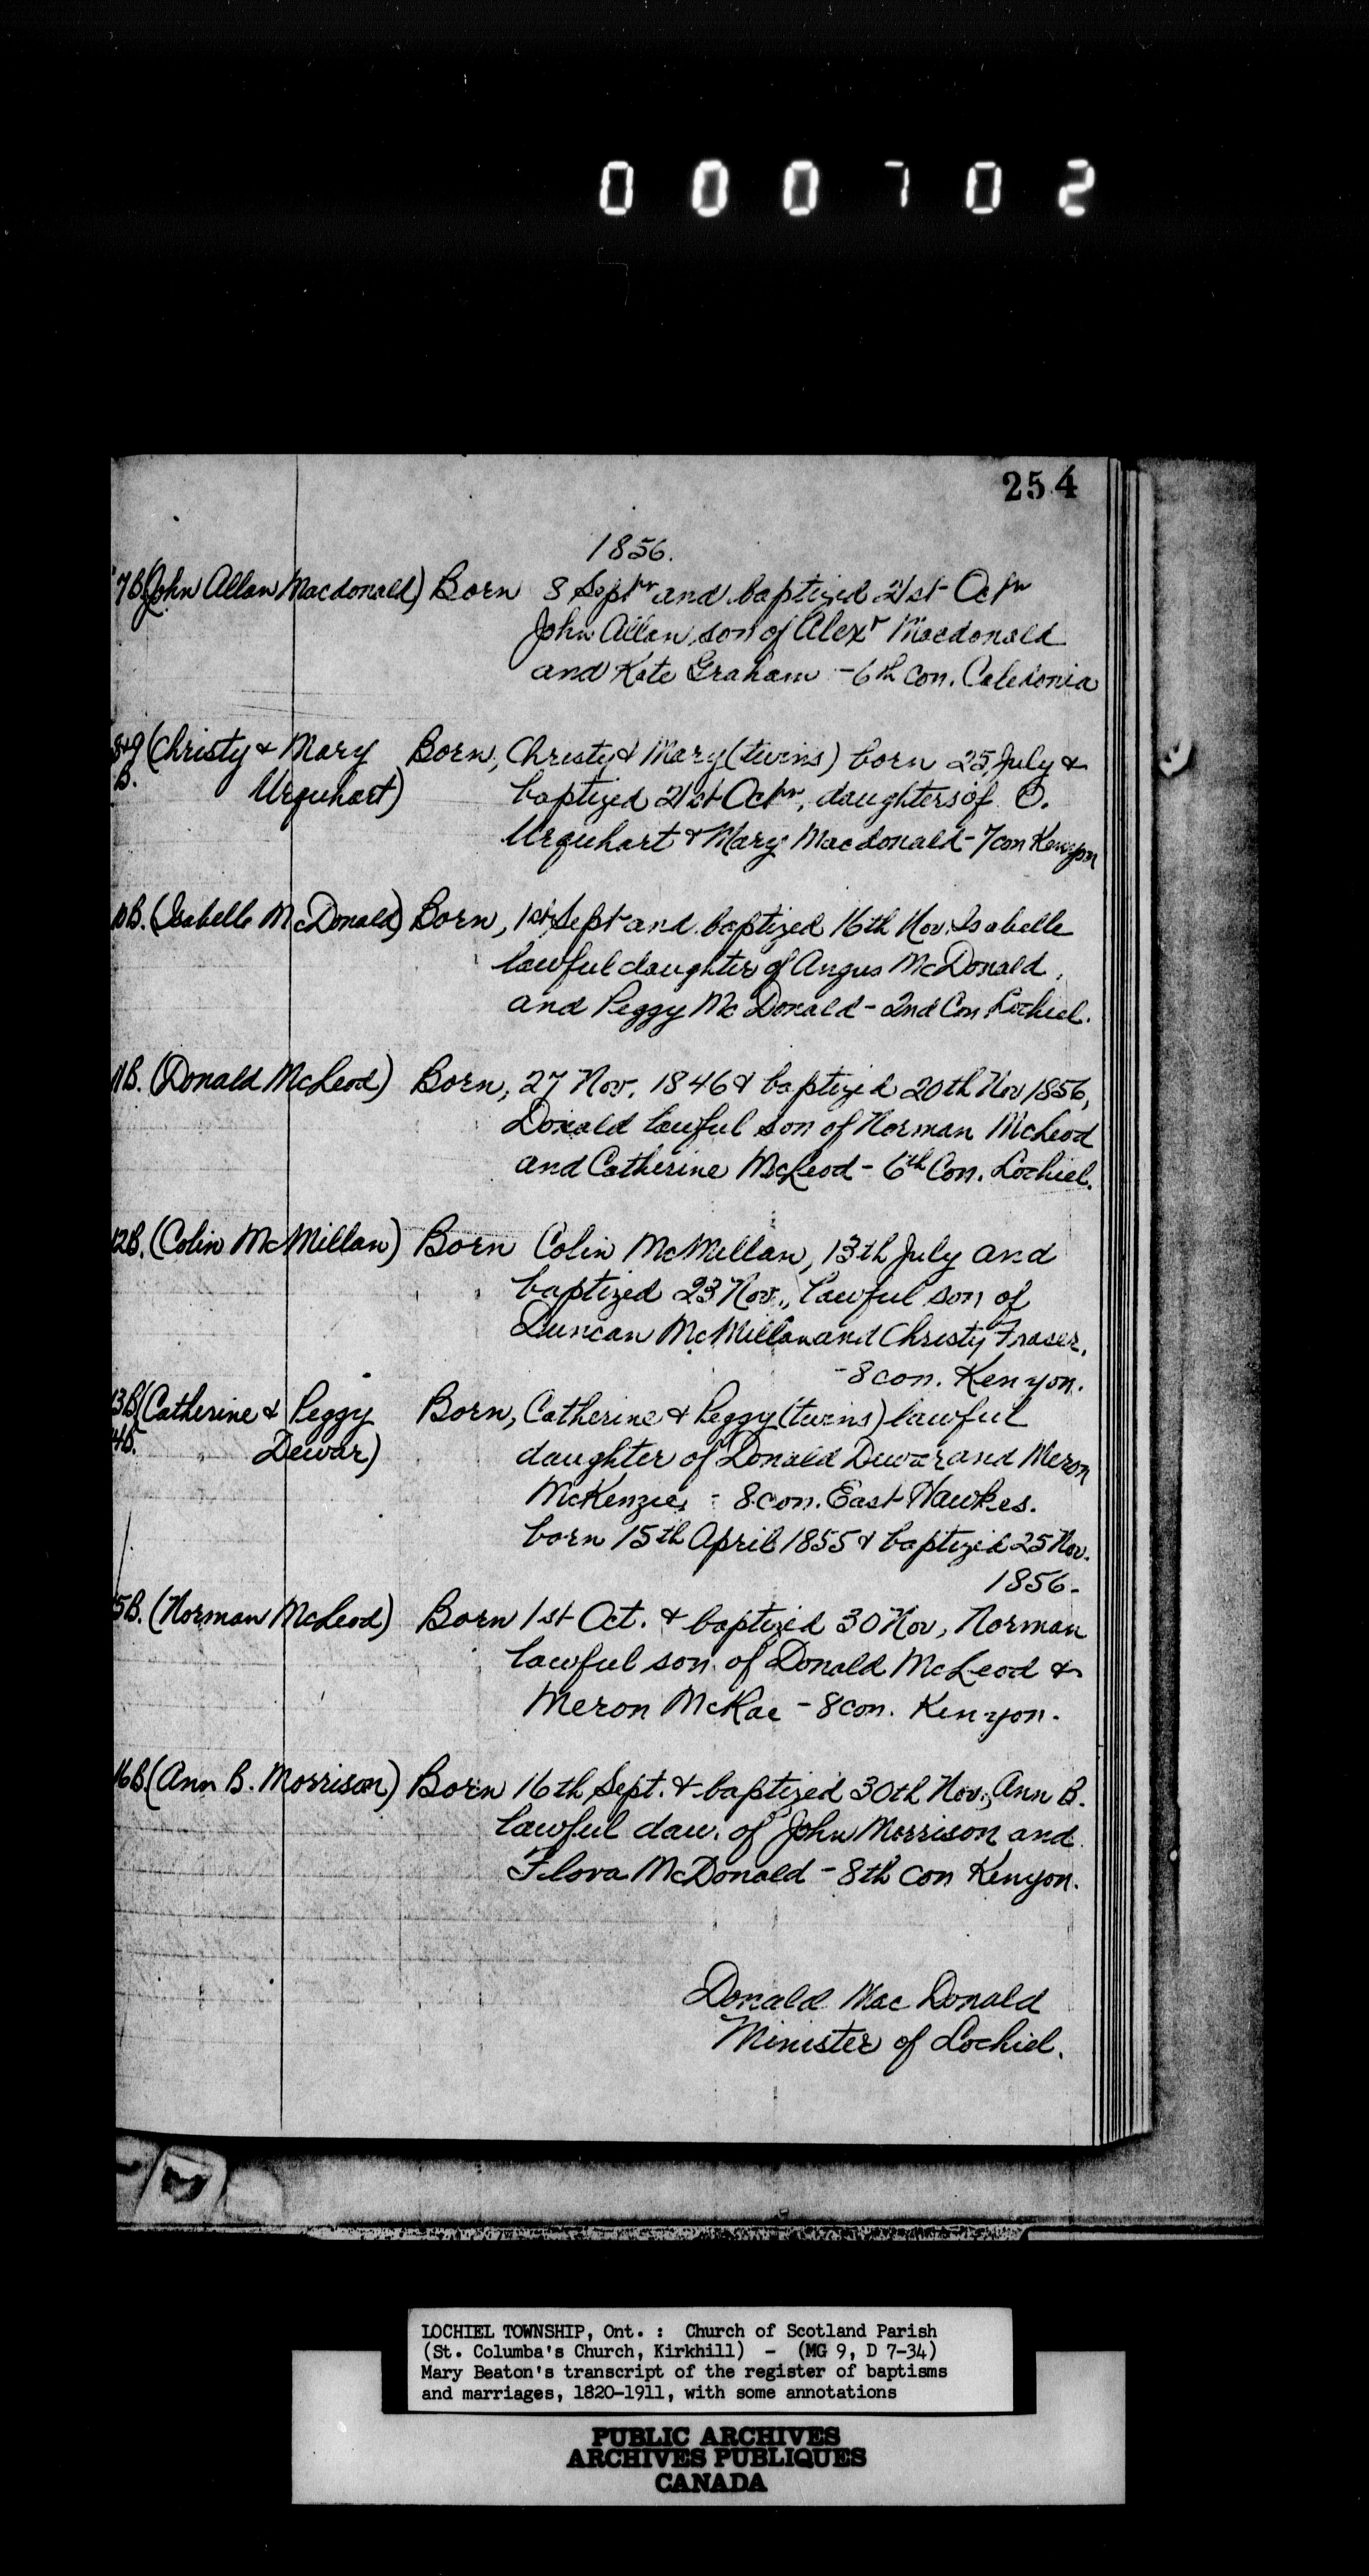 000702
254
1856.
7B (John Allan Macdonald) Born 8 Septr and baptized 21st Octbr
John Allan, son of Alexr Macdonald
and Kate Graham - 6th con. Caledonia
8+9 (Christy & Mary Born, Christy & Mary (twins) born 25 July &
B. Urquhart) baptized 21st Octbr, daughters of O.
Urquhart & Mary Macdonald - 7 con Kenyon
10B. (Isabelle McDonald) Born, 1st Sept and baptized 16th Nov. Isabelle
lawful daughter of Angus McDonald
and Peggy McDonald - 2nd Con Lochiel.
11B. (Donald McLeod) Born, 27 Nov. 1846 & baptized 20th Nov 1856,
Donald lawful son of Norman McLeod
and Catherine McLeod - 6th Con. Lochiel.
12B. (Colin McMillan) Born Colin McMillan, 13th July and
baptized 23 Nov., lawful son of
Duncan McMillan and Christy Fraser.
- 8 con. Kenyon.
13B (Catherine & Peggy Born, Catherine & Peggy (twins) lawful
14B. Dewar) daughter of Donald Dewar and Meron
McKenzie, - 8 con. East Hawkes.
born 15th April 1855 & baptized 25 Nov.
1856.
15B. (Norman McLeod) Born 1st Oct. & baptized 30 Nov, Norman
lawful son of Donald McLeod &
Meron McRae - 8 con. Kenyon.
16B (Ann B. Morrison) Born 16th Sept. & baptized 30th Nov., Ann B.
lawful dau. of John Morrison and
Flora McDonald - 8th con Kenyon.
Donald MacDonald
Minister of Lochiel.
LOCHIEL TOWNSHIP, Ont. : Church of Scotland Parish
(St. Columba's Church, Kirkhill) - (MG 9, D 7-34)
Mary Beaton's transcript of the register of baptisms
and marriages, 1820-1911, with some annotations
PUBLIC ARCHIVES
ARCHIVES PUBLIQUES
CANADA